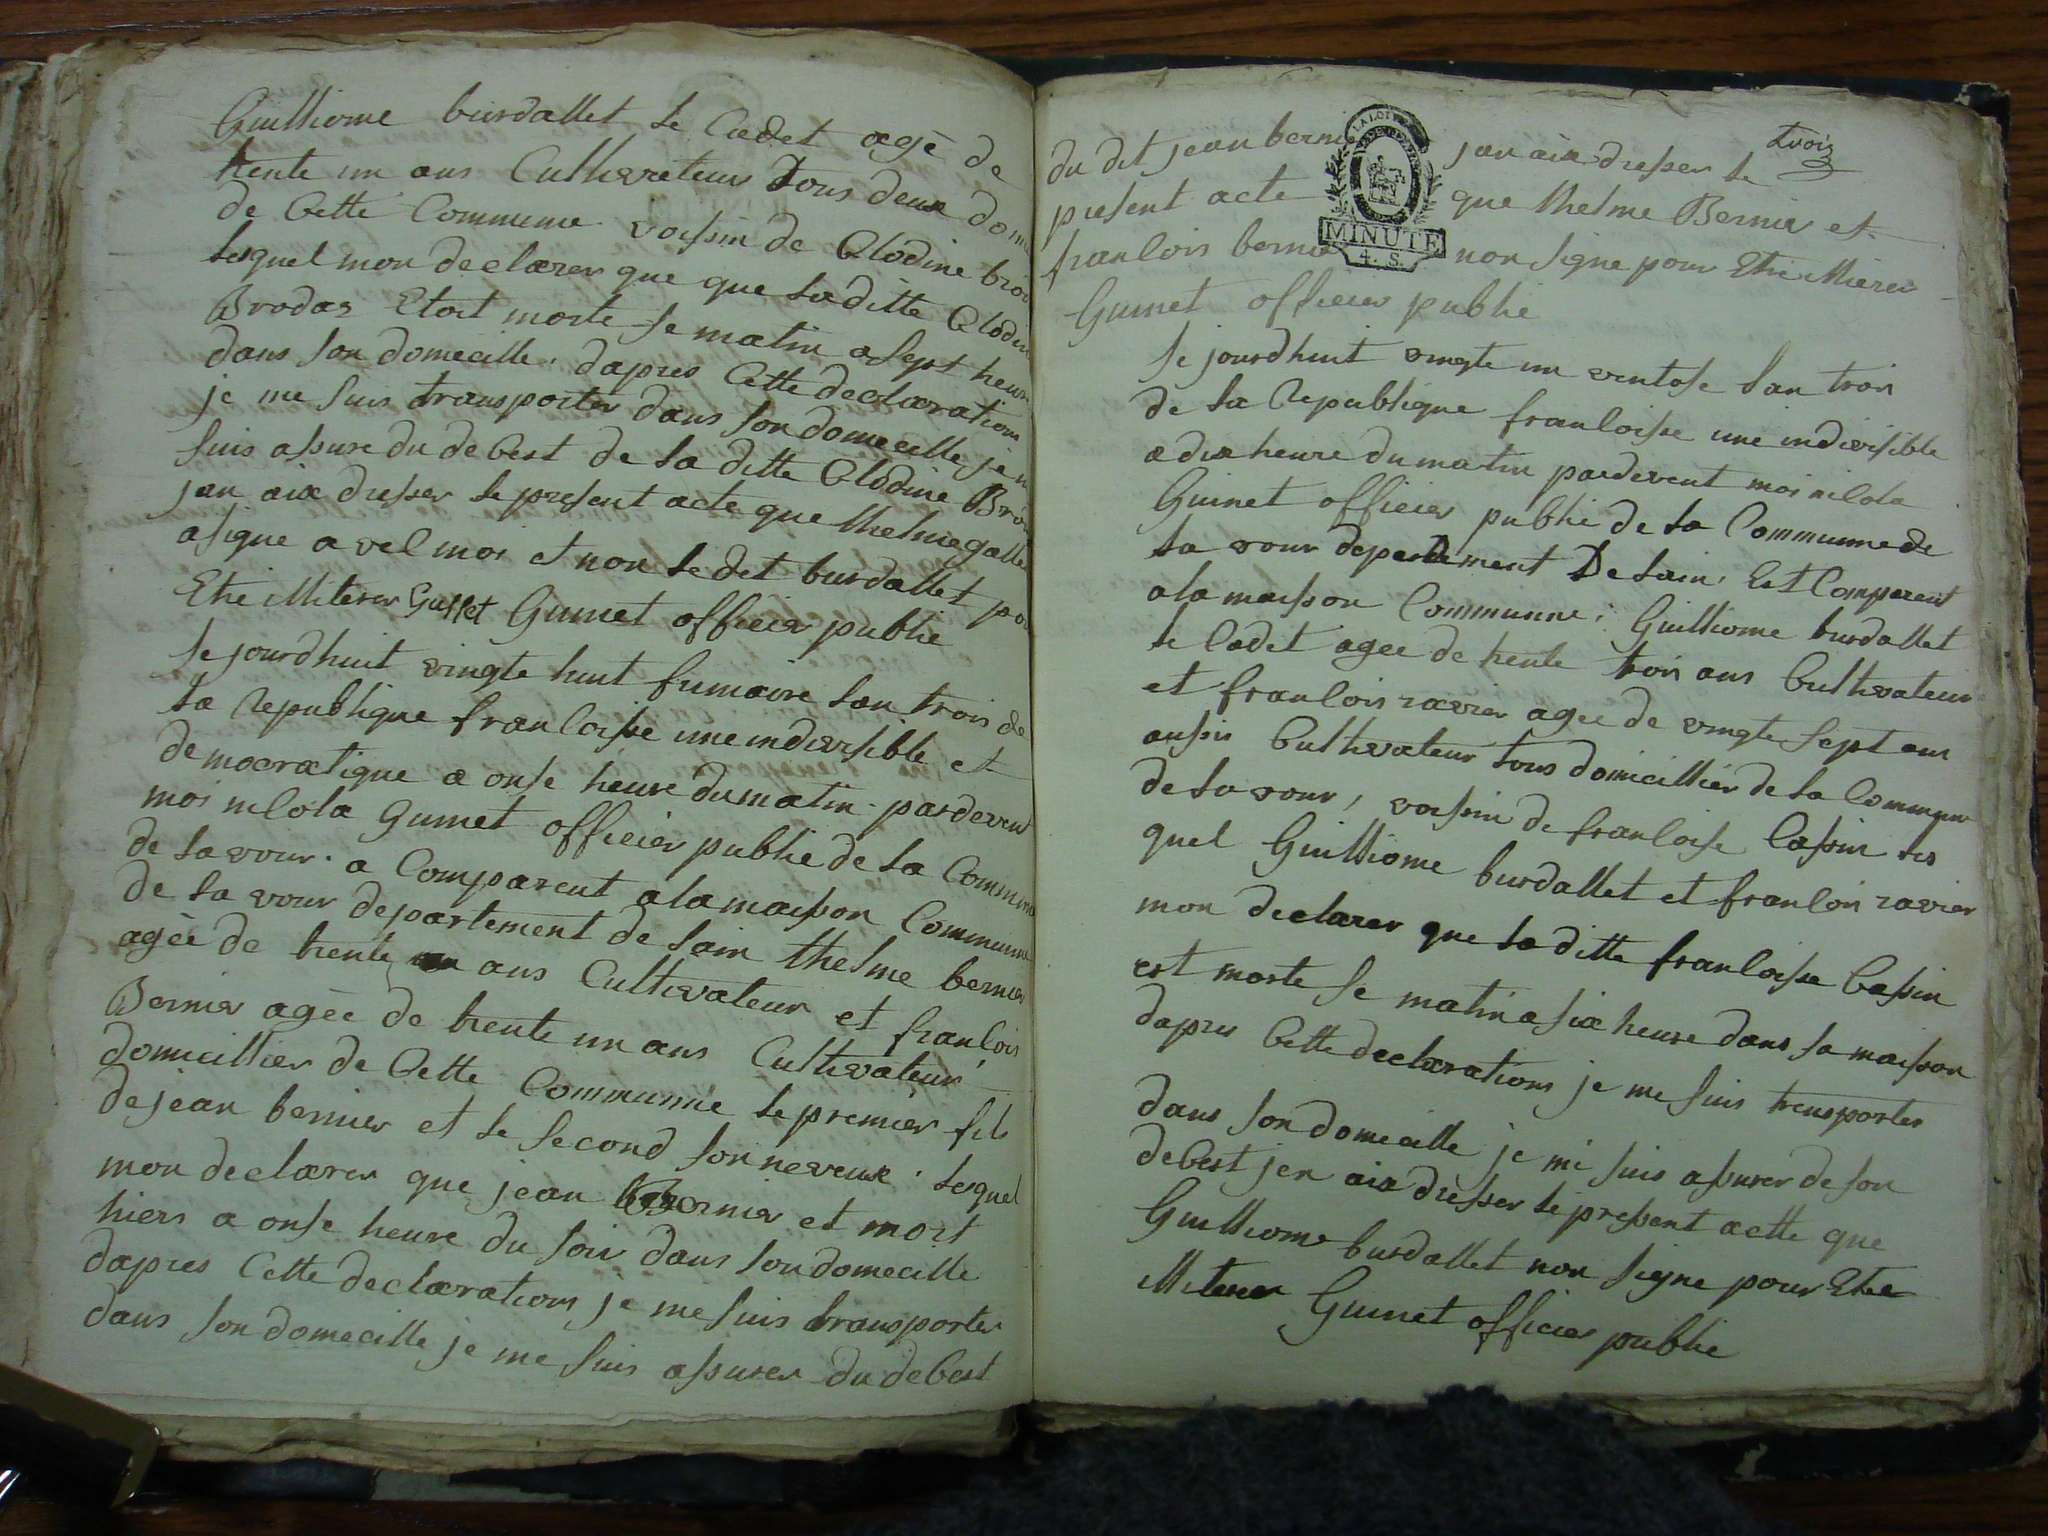 Guilliome burdallet le Cadet agé de
trente un ans Cultivateur Tous deux domi
de Cette Commune voissin de Clodine bro
lesquel mon declarer que que la ditte Clodin
Brodaz Etoit morte se matin a sept heur
dans son domecille. dapres Cette declarations
je me suis transporter dans son domecille je m
suis assure du decest de la ditte Clodine Bro
jan aix dresser le present acte que thelme galle
a signe avec moi et non le det burdallet pou
Etre illiterer Gallet Guinet officier public
le jourdhuit vingte huit fumaire lan trois de
la Republique francoisse une indivisible et
democratique a onse heure du matin. pardevent
moi nicola Guinet officier publie de la Commun
de lavour. a Comparent a la maisson Commune
de la vour departement de lain thelme bernier
agée de trente ans Cultivateur et francois
Bernier agée de trente un ans Cultivateur
domicillier de Cette Commune le premier fils
de jean bernier et le second son neveux. lesquel
mon declarer que jean bernier et mort
hiers a onse heure du soir dans son domecille
dapres Cette declarations je me suis transporter
dans son domecille je me suis assurer du decest
trois
du dit jean berni jan aix dresser le
present acte que thelme Bernier et
francois bernier non signe pour Etre illierer
Guinet officier publie
le jourdhuit vingte un ventose lan trois
de la Republique francoisse une indivisible
a dix heure du matin pardevent moi nicola
Guinet officier publie de la Communne de
la vour depertement De lain Est Comparent
a la maisson Communne: Guilliome burdallet
le Cadet agee de trente trois ans Cultivateur
et francois ravier agee de vingte sept ans
aussi Cultivateur tous domicillier de la Commune
de la vour, voissin de francoise Cassin les
quel Guilliome burdallet et francois ravier
mon declarer que la ditte francoisse Cassin
est morte se matin a six heure dans sa maisson
dapres Cette declarations je me suis transporter
dans son domecille je mi suis assurer de son
decest jen aix dresser le pressent actte que
Guilliome burdallet non signe pour Etre
illiterer Guinet officier publie
LA LOI
MINUTE
4. S.